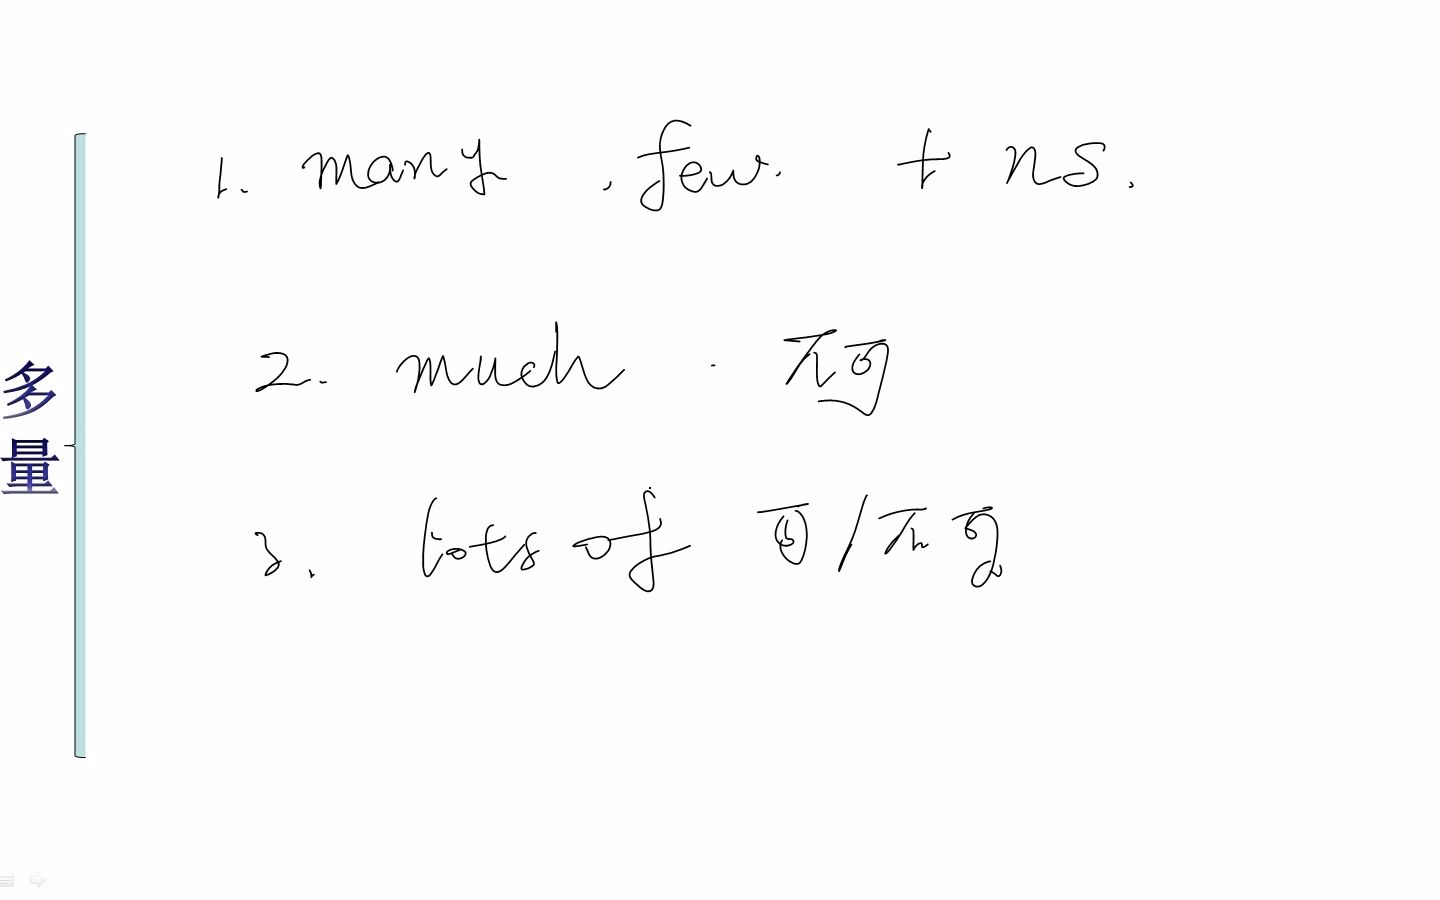 多量
1. many , few. + ns.
2. much . 不可
3. lots of 可/不可